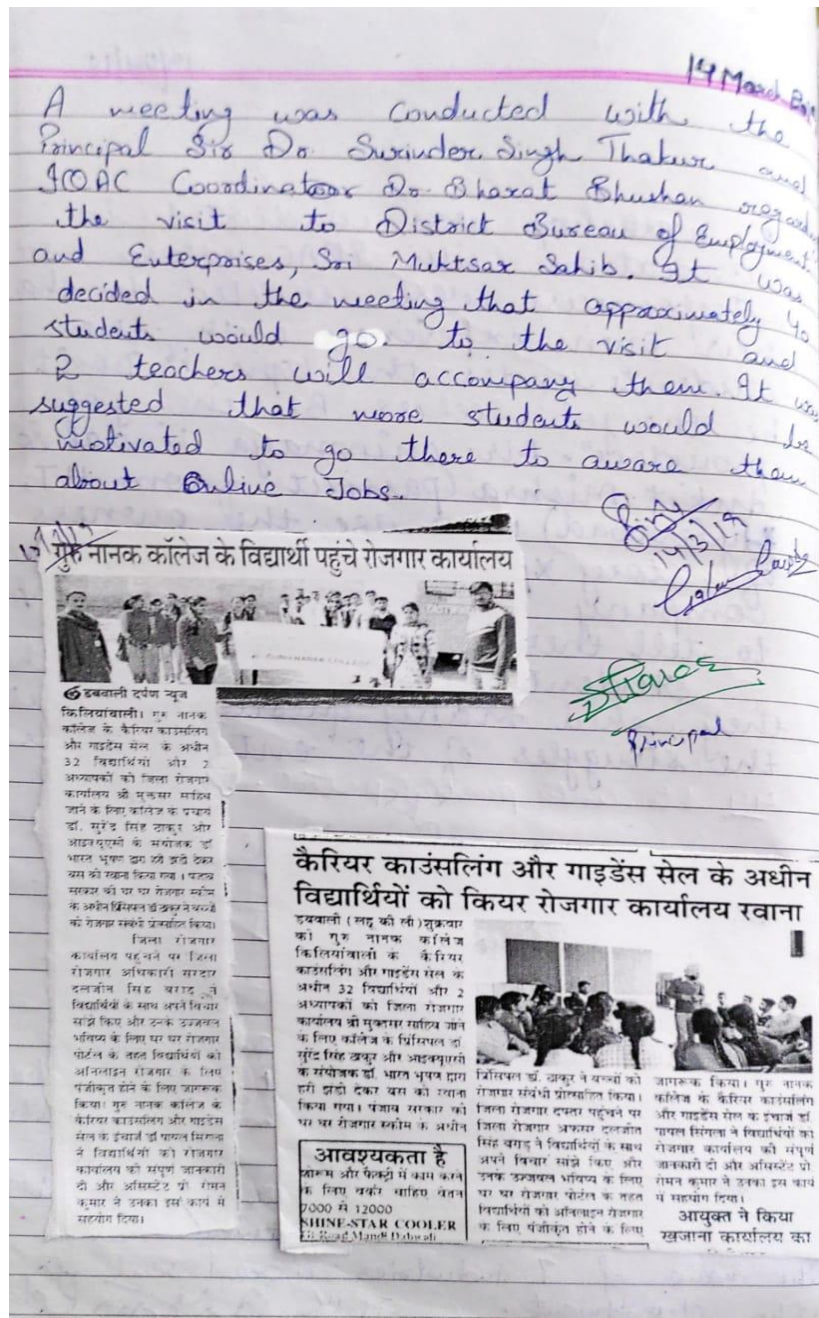 14 March 2019
A meeting was conducted with the
Principal Sir Dr. Surinder Singh Thakur and
IQAC Coordinator Dr. Bharat Bhushan regarding
the visit to District Bureau of Employment
and Enterprises, Sri Muktsar Sahib. It was
decided in the meeting that approximately 40
students would go to the visit and
2 teachers will accompany them. It was
suggested that more students would be
motivated to go there to aware them
about Online Jobs.
14/3/19
Principal
गुरु नानक कॉलेज के विद्यार्थी पहुंचे रोजगार कार्यालय
डबवाली दर्पण न्यूज
किलियांवाली। गुरु नानक
कॉलेज के कैरियर काउंसलिंग
और गाइडेंस सेल के अधीन
32 विद्यार्थियों और 2
अध्यापकों को जिला रोजगार
कार्यालय श्री मुक्तसर साहिब
जाने के लिए कॉलेज के प्राचार्य
डॉ. सुरेंद्र सिंह ठाकुर और
आइक्यूएसी के संयोजक डॉ
भारत भूषण द्वारा हरी झंडी देकर
बस को रवाना किया गया। पंजाब
सरकार की घर घर रोजगार स्कीम
के अधीन प्रिंसिपल डॉ ठाकुर ने बच्चों
को रोजगार संबंधी प्रोत्साहित किया।
जिला रोजगार
कार्यालय पहुंचने पर जिला
रोजगार अधिकारी सरदार
दलजीत सिंह बराड़ ने
विद्यार्थियों के साथ अपने विचार
सांझे किए और उनके उज्जवल
भविष्य के लिए घर घर रोजगार
पोर्टल के तहत विद्यार्थियों को
आनलाइन रोजगार के लिए
पंजीकृत होने के लिए जागरूक
किया। गुरु नानक कॉलेज के
कैरियर काउंसलिंग और गाइडेंस
सेल के इंचार्ज डॉ पायल सिंगला
ने विद्यार्थियों को रोजगार
कार्यालय की संपूर्ण जानकारी
दी और असिस्टेंट प्रो. रोमन
कुमार ने उनका इस कार्य में
सहयोग दिया।
कैरियर काउंसलिंग और गाइडेंस सेल के अधीन
विद्यार्थियों को कियर रोजगार कार्यालय रवाना
डबवाली (लहू की लौ) शुक्रवार
को गुरु नानक कॉलेज
किलियांवाली के कैरियर
काउंसलिंग और गाइडेंस सेल के
अधीन 32 विद्यार्थियों और 2
अध्यापकों को जिला रोजगार
कार्यालय श्री मुक्तसर साहिब जाने
के लिए कॉलेज के प्रिंसिपल डॉ
सुरेंद्र सिंह ठाकुर और आइक्यूएसी
के संयोजक डॉ. भारत भूषण द्वारा
हरी झंडी देकर बस को रवाना
किया गया। पंजाब सरकार की
घर घर रोजगार स्कीम के अधीन
प्रिंसिपल डॉ. ठाकुर ने बच्चों को
रोजगार संबंधी प्रोत्साहित किया।
जिला रोजगार दफ्तर पहुंचने पर
जिला रोजगार अफसर दलजीत
सिंह बराड़ ने विद्यार्थियों के साथ
अपने विचार सांझे किए और
उनके उज्जवल भविष्य के लिए
घर घर रोजगार पोर्टल के तहत
विद्यार्थियों को आनलाइन रोजगार
के लिए पंजीकृत होने के लिए
जागरूक किया। गुरु नानक
कॉलेज के कैरियर काउंसलिंग
और गाइडेंस सेल के इंचार्ज डॉ
पायल सिंगला ने विद्यार्थियों को
रोजगार कार्यालय की संपूर्ण
जानकारी दी और असिस्टेंट प्रो.
रोमन कुमार ने उनका इस कार्य
में सहयोग दिया।
आवश्यकता है
शोरूम और फैक्ट्री में काम करने
के लिए वर्कर चाहिए वेतन
7000 से 12000
SHINE-STAR COOLER
Road Mandi Dabwali
आयुक्त ने किया
खजाना कार्यालय का